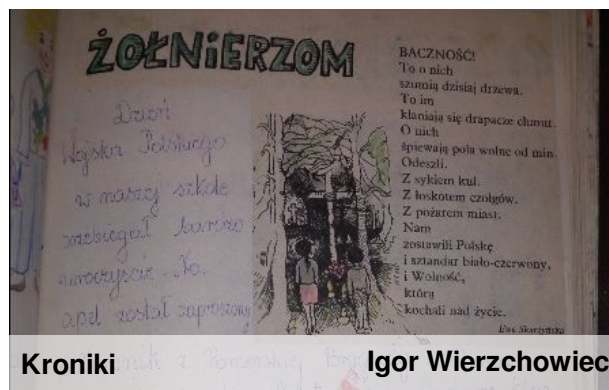 ŻOŁNiERZOM
Dzień
Wojska Polskiego
w naszej szkole
przebiegał bardzo
uroczyście. Na
apel został zaproszony
z Pomorskiej
BACZNOŚĆ!
To o nich
szumią dzisiaj drzewa.
To im
kłaniają się drapacze chmur.
O nich
śpiewają pola wolne od min.
Odeszli.
Z sykiem kul.
Z łoskotem czołgów.
Z pożarem miast.
Nam
zostawili Polskę
i sztandar biało-czerwony,
i Wolność,
którą
kochali nad życie.
Ewa Skarżyńska
Kroniki
Igor Wierzchowiec